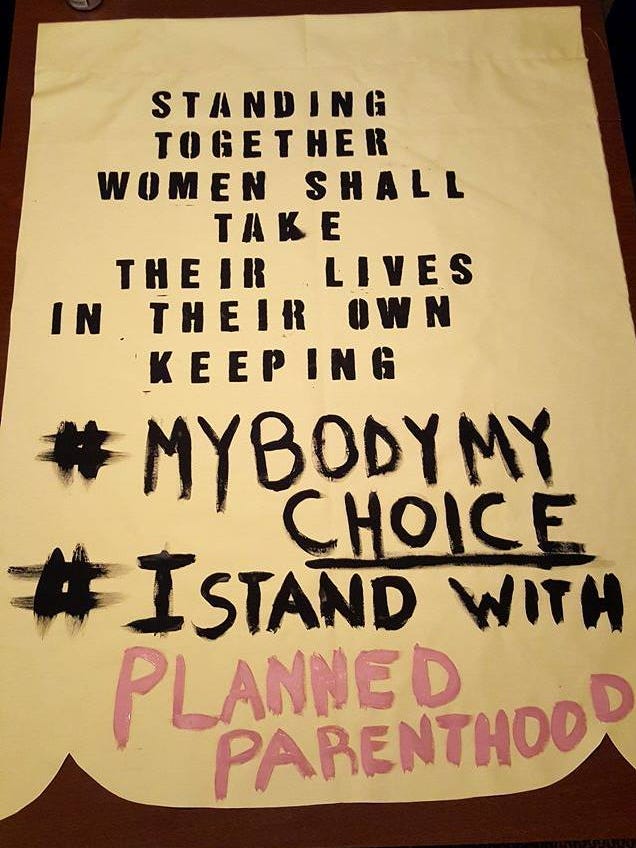 STANDING
TOGETHER
WOMEN SHALL
TAKE
THEIR LIVES
IN THEIR OWN
KEEPING
# MY BODY MY
CHOICE
# I STAND WITH
PLANNED
PARENTHOOD